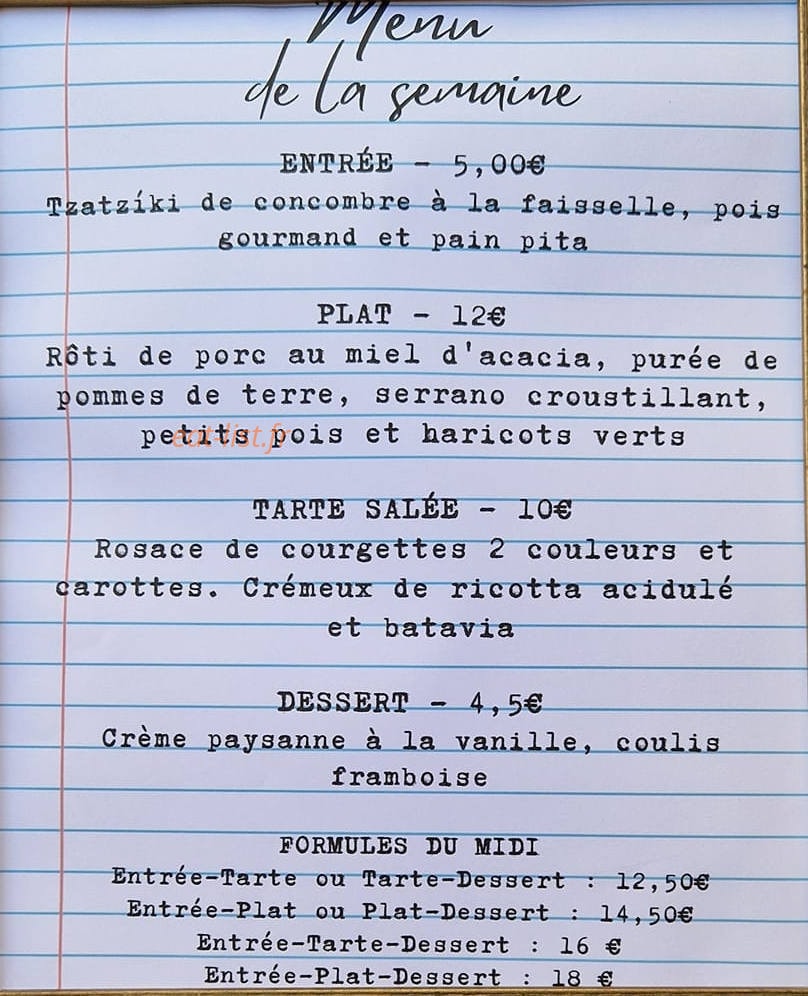 Menu
de la semaine
ENTRÉE - 5,00€
Tzatzíki de concombre à la faisselle, pois
gourmand et pain pita
PLAT - 12€
Rôti de porc au miel d'acacia, purée de
pommes de terre, serrano croustillant,
petits pois et haricots verts
eat-list.fr
TARTE SALÉE - 10€
Rosace de courgettes 2 couleurs et
carottes. Crémeux de ricotta acidulé
et batavia
DESSERT - 4,5€
Crème paysanne à la vanille, coulis
framboise
FORMULES DU MIDI
Entrée-Tarte ou Tarte-Dessert : 12,50€
Entrée-Plat ou Plat-Dessert : 14,50€
Entrée-Tarte-Dessert : 16 €
Entrée-Plat-Dessert : 18 €